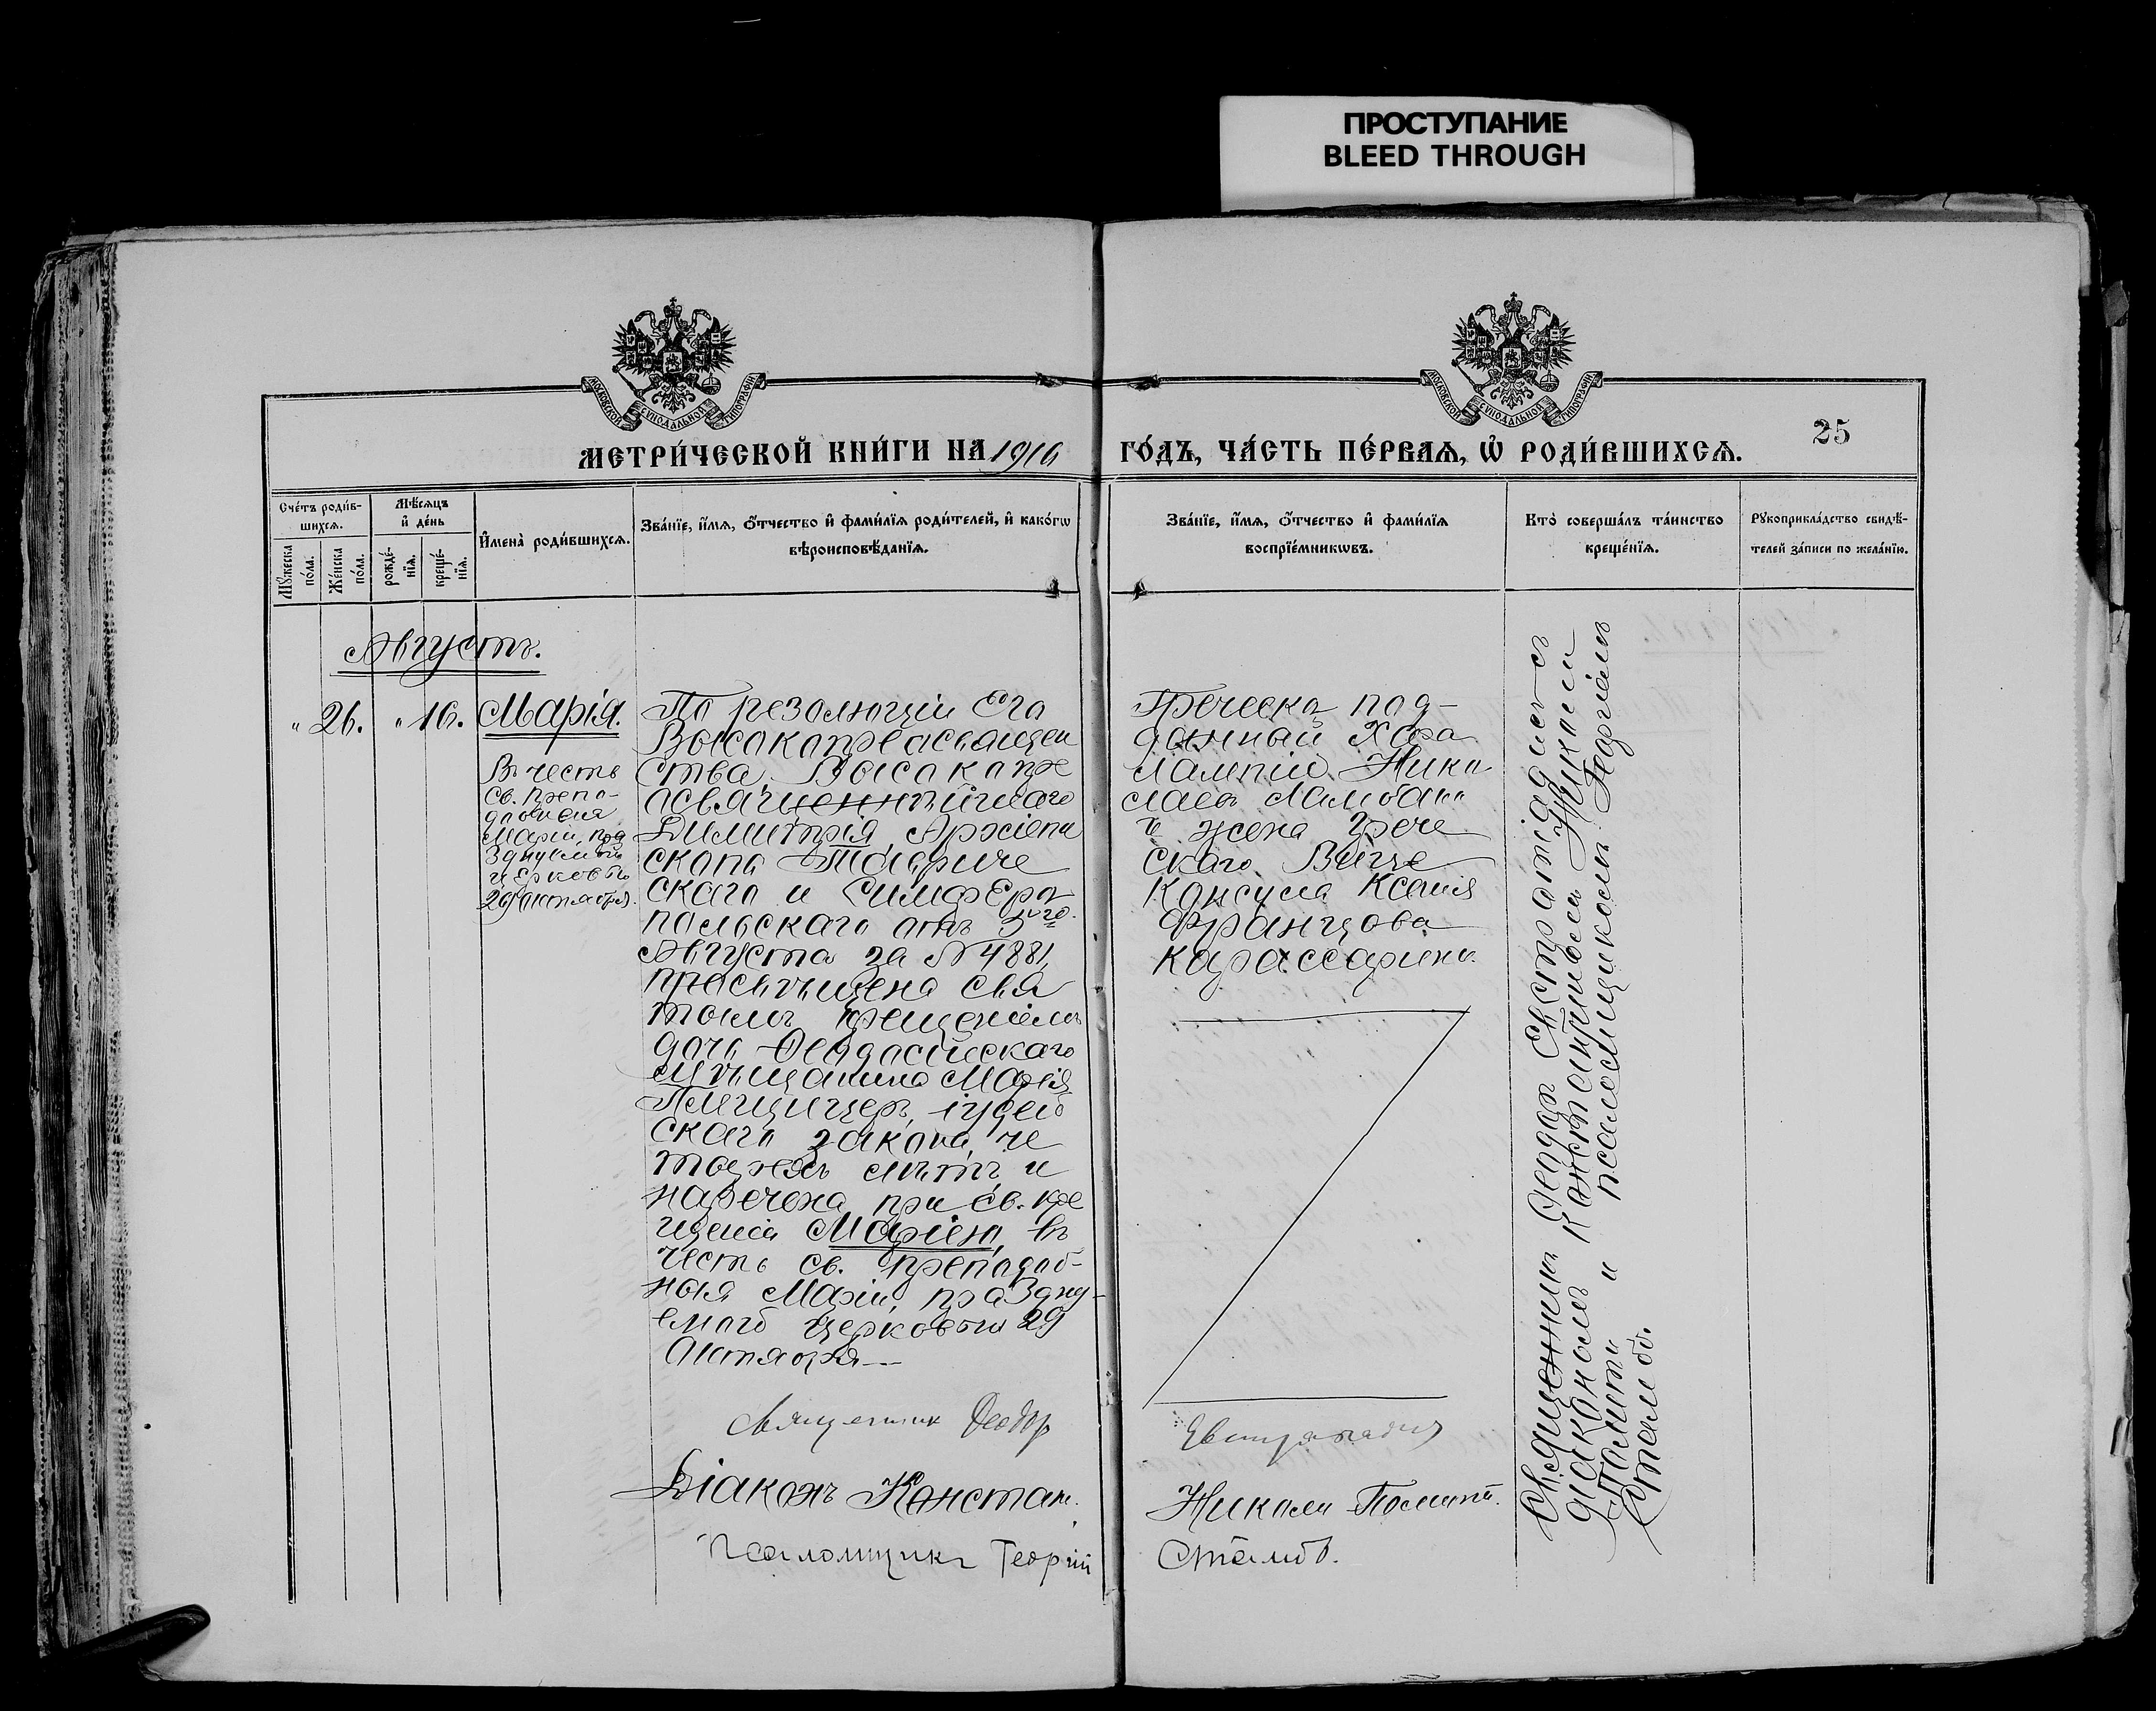 ПРОСТУПАНИЕ
BLEED THROUGH
МОСКОВСКОЙ СѴНОДАЛЬНОЙ ТИПОГРАФІИ
МОСКОВСКОЙ СѴНОДАЛЬНОЙ ТИПОГРАФІИ
МЕТРИ́ЧЕСКОЙ КНИ́ГИ НА 1916 ГО́ДЪ, ЧА́СТЬ ПЕ́РВАѦ, Ѡ РОДИ́ВШИХСѦ.
25
Сче́тъ роди́в-
шихсѧ.
Мꙋ́жеска по́ла.
Же́нска по́ла.
Мѣ́сѧцъ и де́нь
рожде́-
нїѧ.
креще́-
нїѧ.
И҆мена̀ роди́вшихсѧ.
Зва́нїе, и҆́мѧ, ѻ҆́тчество и҆ фами́лїѧ роди́телей, и҆ како́гѡ
вѣроисповѣ́данїѧ.
Зва́нїе, и҆́мѧ, ѻ҆́тчество и҆ фами́лїѧ
воспрїе́мникѡвъ.
Кто̀ соверша́лъ та́инство
креще́нїѧ.
Рꙋкоприкла́дство свидѣ́-
телей за́писи по жела́нїю.
Августъ.
" 26. " 16. Марія.
Въ честь
св. препо-
добныя
Маріи, праз
днуемой
церковью
29 октября.
По резолюціи Его
Высокопреосвящен
ства Высокопре
освященнѣйшаго
Димитрія Архіепи
скопа Тавриче
скаго и Симферо
польскаго отъ 5го
Августа за № 4881,
просвѣщена свя
тымъ крещеніемъ
дочь Ѳеодосійскаго
мѣщанина Марія
іудей
скаго закона,
лѣтъ и
наречена при св. кре
щеніи Маріею, въ
честь св. преподоб-
ныя Маріи, праздну-
емаго церковью 29
Октября—
Греческо под-
данный Хара
лампій Нико
лаевъ
и жена Грече
скаго Вице
Консула Ксенія
Францова
Карассарини.
Священникъ Ѳеодоръ Евстратіадисъ съ
діакономъ Константиномъ Николаи
Полити и псаломщикомъ Георгіемъ
Стамб.
Священникъ Ѳеодор Евстратіадис
Діаконъ Констан. Николаи Полити.
Псаломщикъ Георгій Стамб.